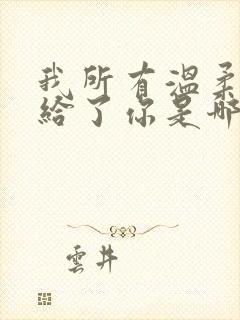 我所有溫柔
給了你是哪
雲井